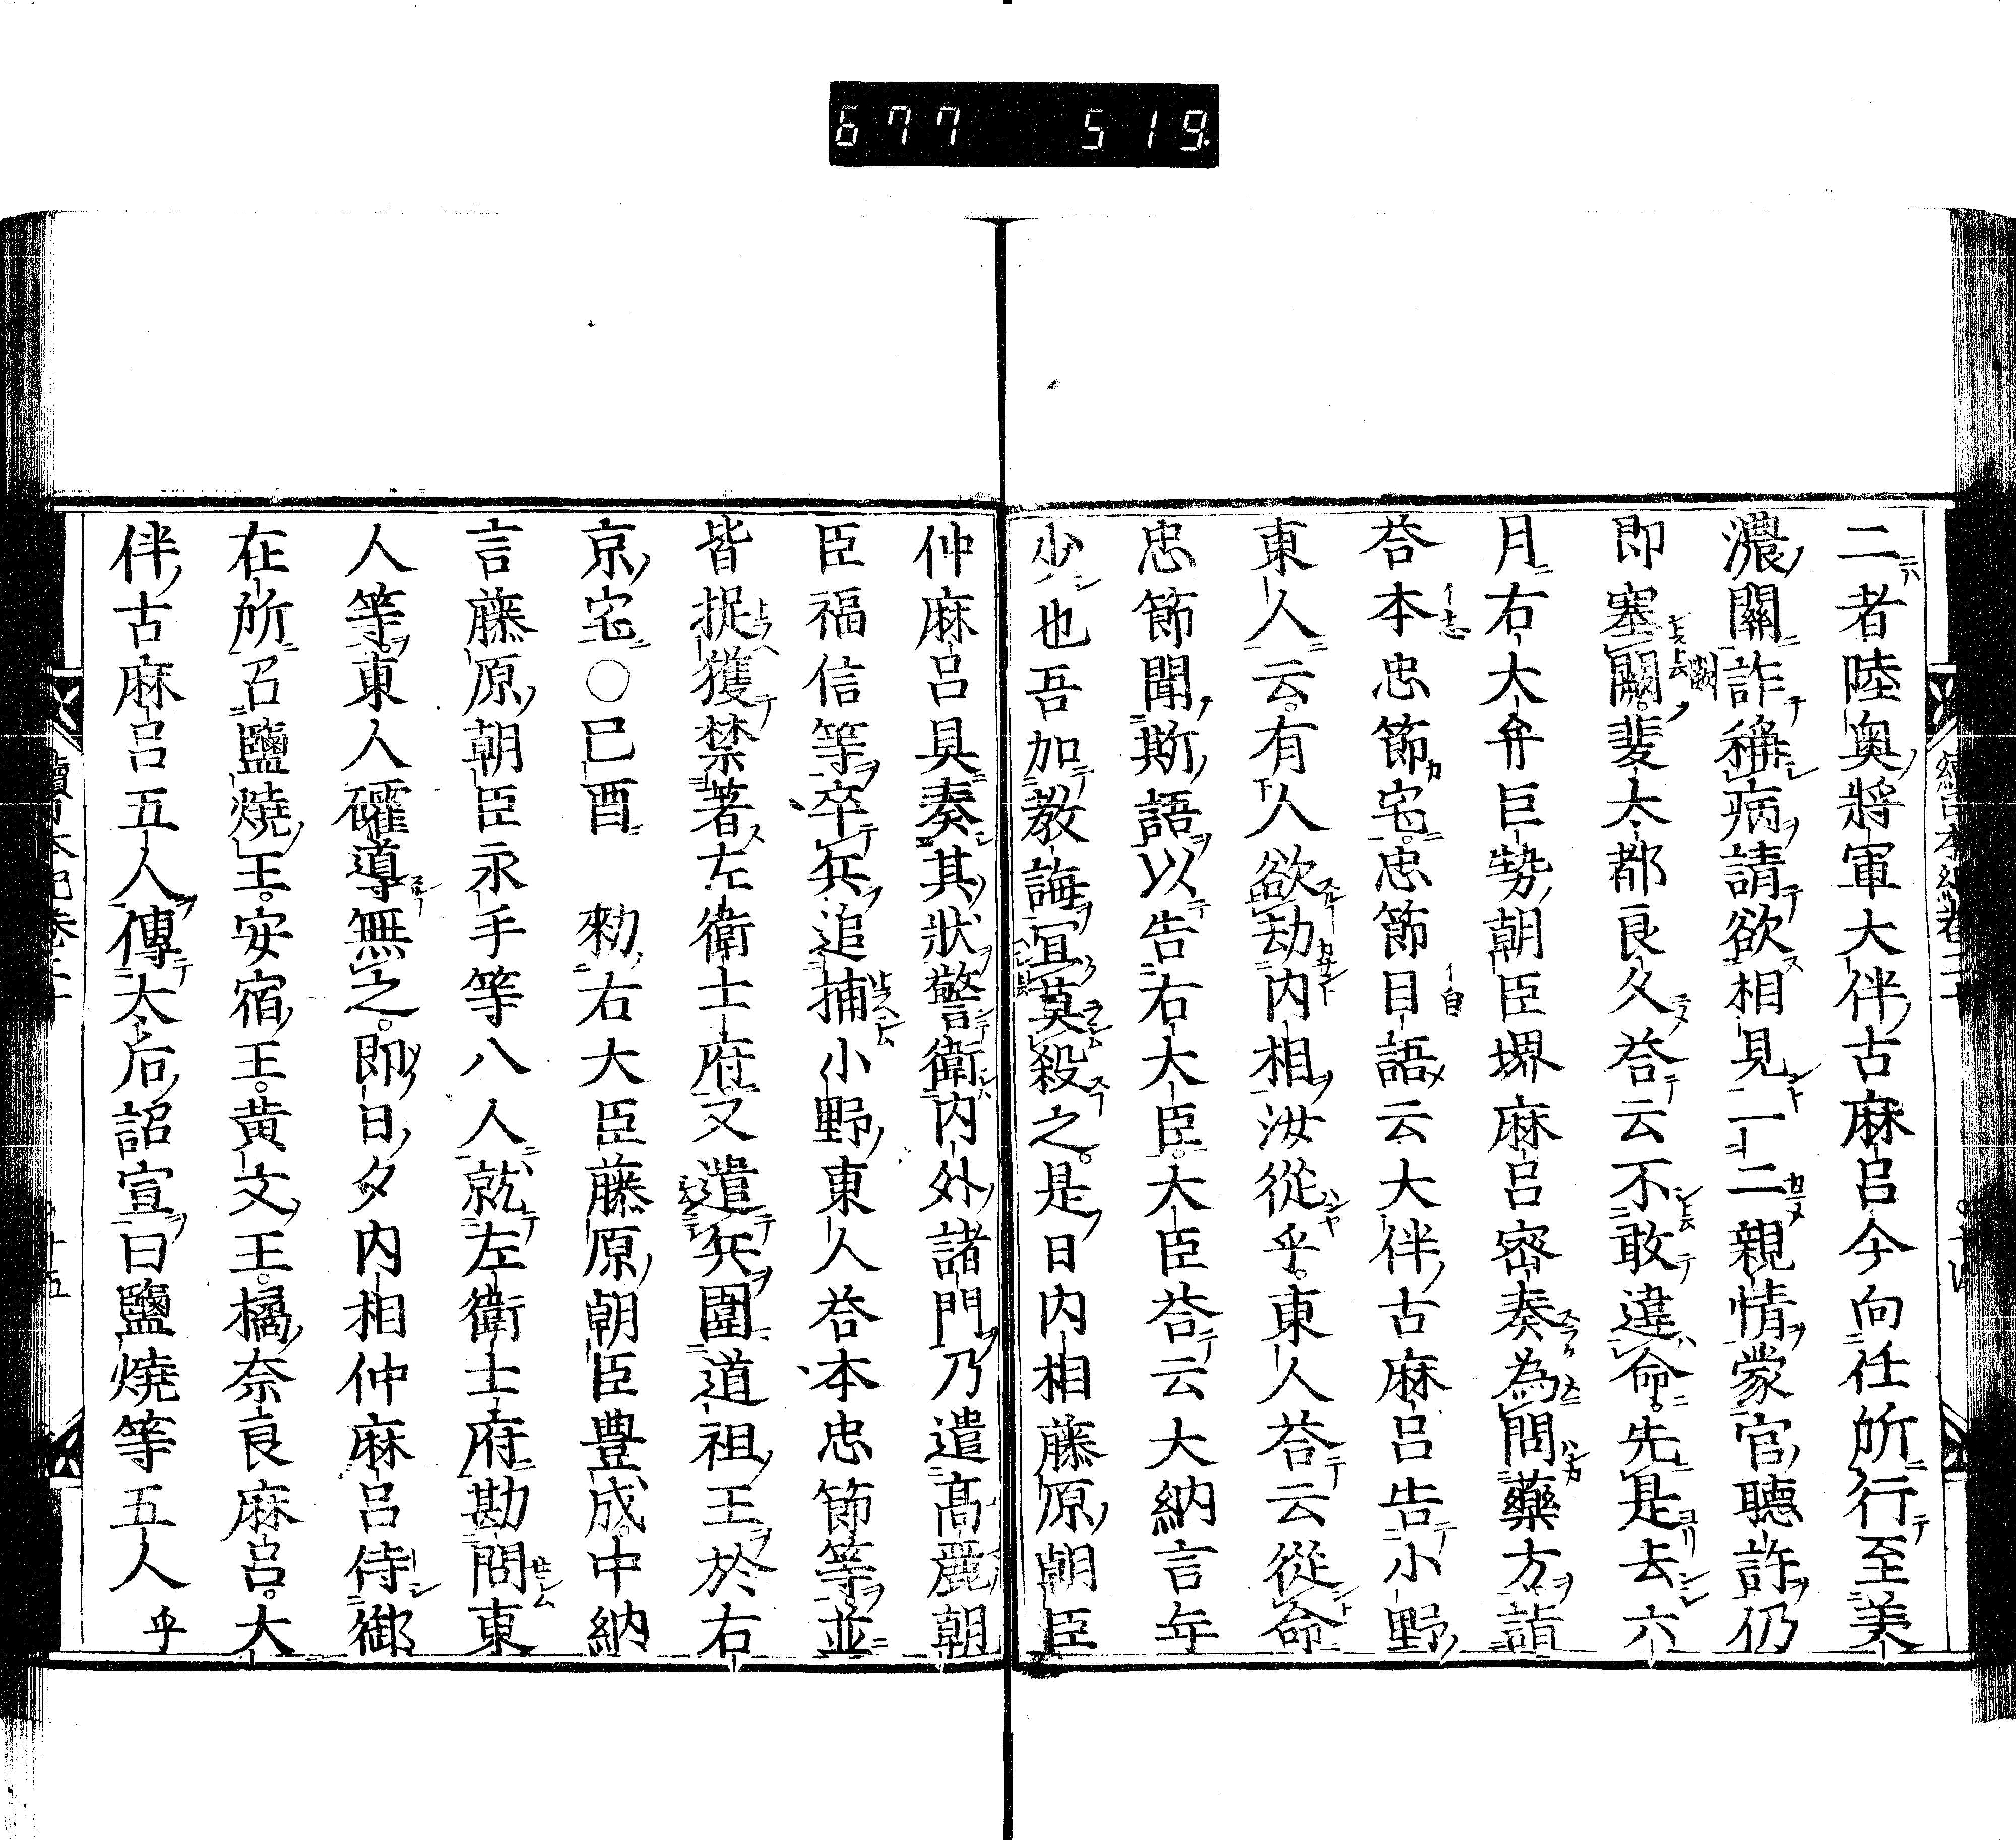 677 519.
二者陸奥將軍大伴古麻呂今向任所行至美
濃關詐稱病請欲相見一二親情蒙官聽許仍
即塞關斐太都良久荅云不敢違命先是去六
月右大弁巨勢朝臣堺麻呂密奏為問藥方詣
荅本忠節宅忠節目語云大伴古麻呂告小野
東人云有人欲劫内相汝從乎東人荅云從命
忠節聞斯語以告右大臣大臣荅云大納言年
少也吾加教誨宜莫殺之是日内相藤原朝臣
仲麻呂具奏其狀警衛内外諸門乃遣髙麗朝
臣福信等卒兵追捕小野東人荅本忠節等並
皆捉獲禁著左衛士府又遣兵圍道祖王於右
京宅○巳酉　勑右大臣藤原朝臣豊成中納
言藤原朝臣永手等八人就左衛士府勘問東
人等東人確導無之即日夕内相仲麻呂侍御
在所召鹽燒王安宿王黄文王橘奈良麻呂大
伴古麻呂五人傳太后詔宣曰鹽焼等五人乎